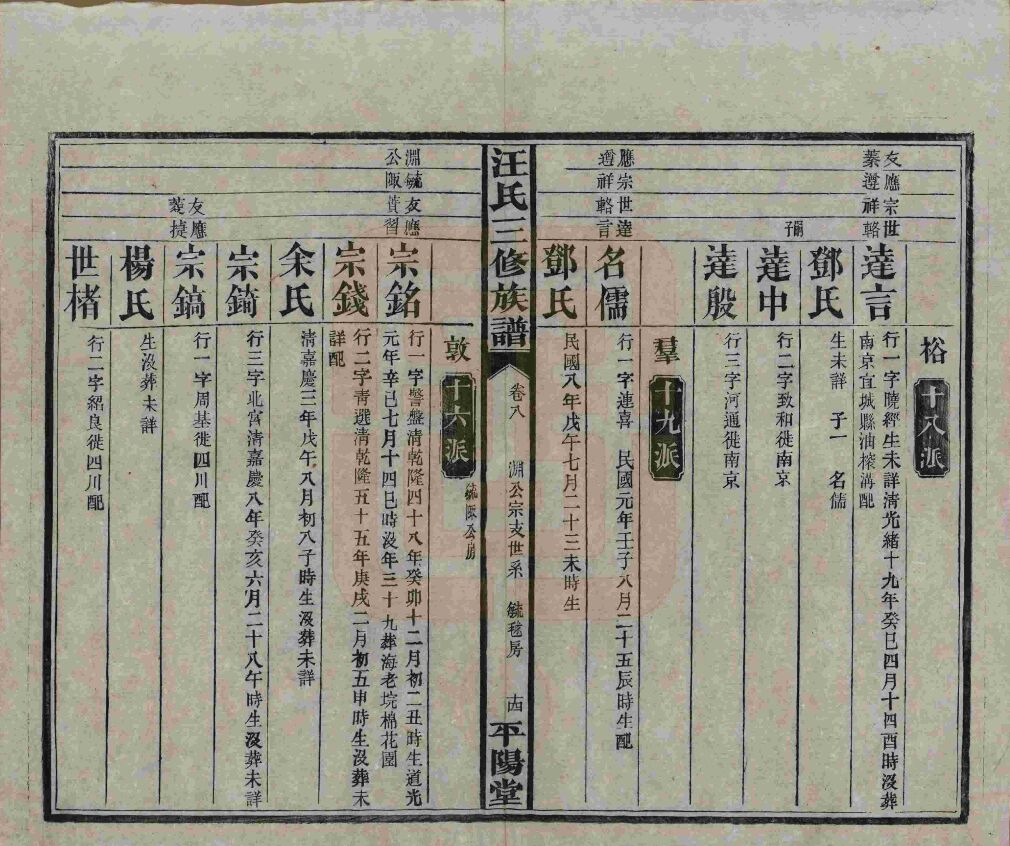 裕 十八派
友應宗世
蓁遵祥輅
達言 行一字曉經生未詳清光緒十九年癸巳四月十四酉時沒葬
南京宜城縣油榨溝配
鄧氏 生未詳 子一 名儒
嗣子
達中 行二字致和徙南京
達殷 行三字河通徙南京
羣 十九派
應宗世達
遵祥輅言
名儒 行一字連喜 民國元年壬子八月二十五辰時生配
鄧氏 民國八年戊午七月二十三未時生
汪氏三修族譜 卷八 淵公宗支世系 毓毬房 十四 平陽堂
敦 十六派 毓陬公房
淵毓友應
公陬蕡習
宗銘 行一字警盤清乾隆四十八年癸卯十二月初二丑時生道光
元年辛巳七月十四巳時沒年三十九葬海老垸棉花園
宗錢 行二字青選清乾隆五十五年庚戌二月初五申時生沒葬未
詳配
余氏 清嘉慶三年戊午八月初八子時生沒葬未詳
宗錡 行三字北宮清嘉慶八年癸亥六月二十八午時生沒葬未詳
友應
蔆捷
宗鎬 行一字周基徙四川配
楊氏 生沒葬未詳
世楮 行二字紹良徙四川配